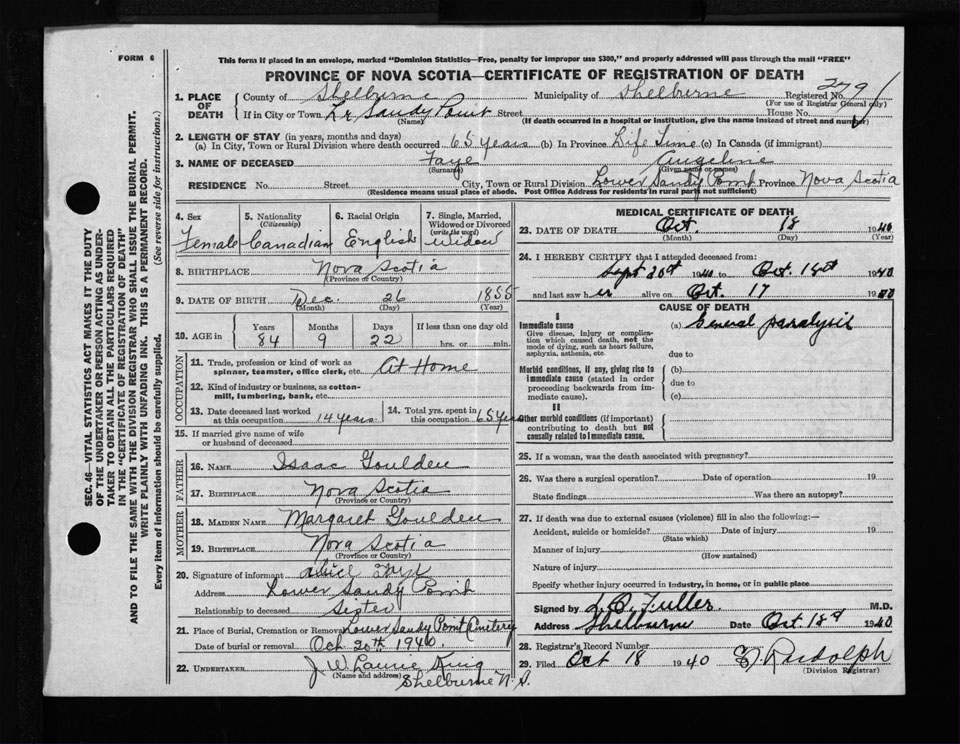 FORM 6
This form if placed in an envelope, marked "Dominion Statistics—Free, penalty for improper use $300," and properly addressed will pass through the mail "FREE"
PROVINCE OF NOVA SCOTIA—CERTIFICATE OF REGISTRATION OF DEATH
1. PLACE OF DEATH
County of Shelburne Municipality of Shelburne Registered No. 279
(For use of Registrar General only)
If in City or Town Lr. Sandy Point Street House No.
(Name) (If death occurred in a hospital or institution, give the name instead of street and number)
2. LENGTH OF STAY (in years, months and days)
(a) In City, Town or Rural Division where death occurred 65 years (b) In Province Life Time (c) In Canada (if immigrant)
3. NAME OF DECEASED Faye Angeline
(Surname) (Given name or names)
RESIDENCE No. Street City, Town or Rural Division Lower Sandy Point Province Nova Scotia
(Residence means usual place of abode. Post Office Address for residents in rural parts not sufficient)
4. Sex Female
5. Nationality (Citizenship) Canadian
6. Racial Origin English
7. Single, Married, Widowed or Divorced (write the word) Widow
8. BIRTHPLACE Nova Scotia
(Province or Country)
9. DATE OF BIRTH Dec. 26 1855
(Month) (Day) (Year)
10. AGE in Years Months Days If less than one day old
84 9 22 hrs. or min.
OCCUPATION
11. Trade, profession or kind of work as spinner, teamster, office clerk, etc. At Home
12. Kind of industry or business, as cotton-mill, lumbering, bank, etc.
13. Date deceased last worked at this occupation 14 years
14. Total yrs. spent in this occupation 65 years
15. If married give name of wife or husband of deceased
FATHER
16. NAME Isaac Goulden
17. BIRTHPLACE Nova Scotia
(Province or Country)
MOTHER
18. MAIDEN NAME Margaret Goulden
19. BIRTHPLACE Nova Scotia
(Province or Country)
20. Signature of informant
Address Lower Sandy Point
Relationship to deceased Sister
21. Place of Burial, Cremation or Removal Lower Sandy Point Cemetery
Date of burial or removal Oct 20th 1940.
22. UNDERTAKER J. W. Laurie King
(Name and address)
Shelburne N.S.
MEDICAL CERTIFICATE OF DEATH
23. DATE OF DEATH Oct. 18 1940
(Month) (Day) (Year)
24. I HEREBY CERTIFY that I attended deceased from:
Sept 20th 1940 to Oct. 1940
and last saw her alive on Oct. 17 1940
CAUSE OF DEATH
I
Immediate cause
Give disease, injury or complication which caused death, not the mode of dying, such as heart failure, asphyxia, asthenia, etc.
(a) General paralysis
due to
Morbid conditions, if any, giving rise to immediate cause (stated in order proceeding backwards from immediate cause).
(b)
due to
(c)
II
Other morbid conditions (if important) contributing to death but not causally related to immediate cause.
25. If a woman, was the death associated with pregnancy?
26. Was there a surgical operation? Date of operation 19
State findings Was there an autopsy?
27. If death was due to external causes (violence) fill in also the following:—
Accident, suicide or homicide? Date of injury 19
(State which)
Manner of injury
(How sustained)
Nature of injury
Specify whether injury occurred in industry, in home, or in public place
Signed by L. O. Fuller. M.D.
Address Shelburne Date Oct. 18 1940
28. Registrar's Record Number
29. Filed Oct 18 1940 Randolph
(Division Registrar)
SEC. 46—VITAL STATISTICS ACT MAKES IT THE DUTY
OF THE UNDERTAKER OR PERSON ACTING AS UNDER-
TAKER TO OBTAIN ALL THE PARTICULARS REQUIRED
IN THE "CERTIFICATE OF REGISTRATION OF DEATH"
AND TO FILE THE SAME WITH THE DIVISION REGISTRAR WHO SHALL ISSUE THE BURIAL PERMIT.
WRITE PLAINLY WITH UNFADING INK. THIS IS A PERMANENT RECORD.
Every item of information should be carefully supplied. (See reverse side for instructions.)